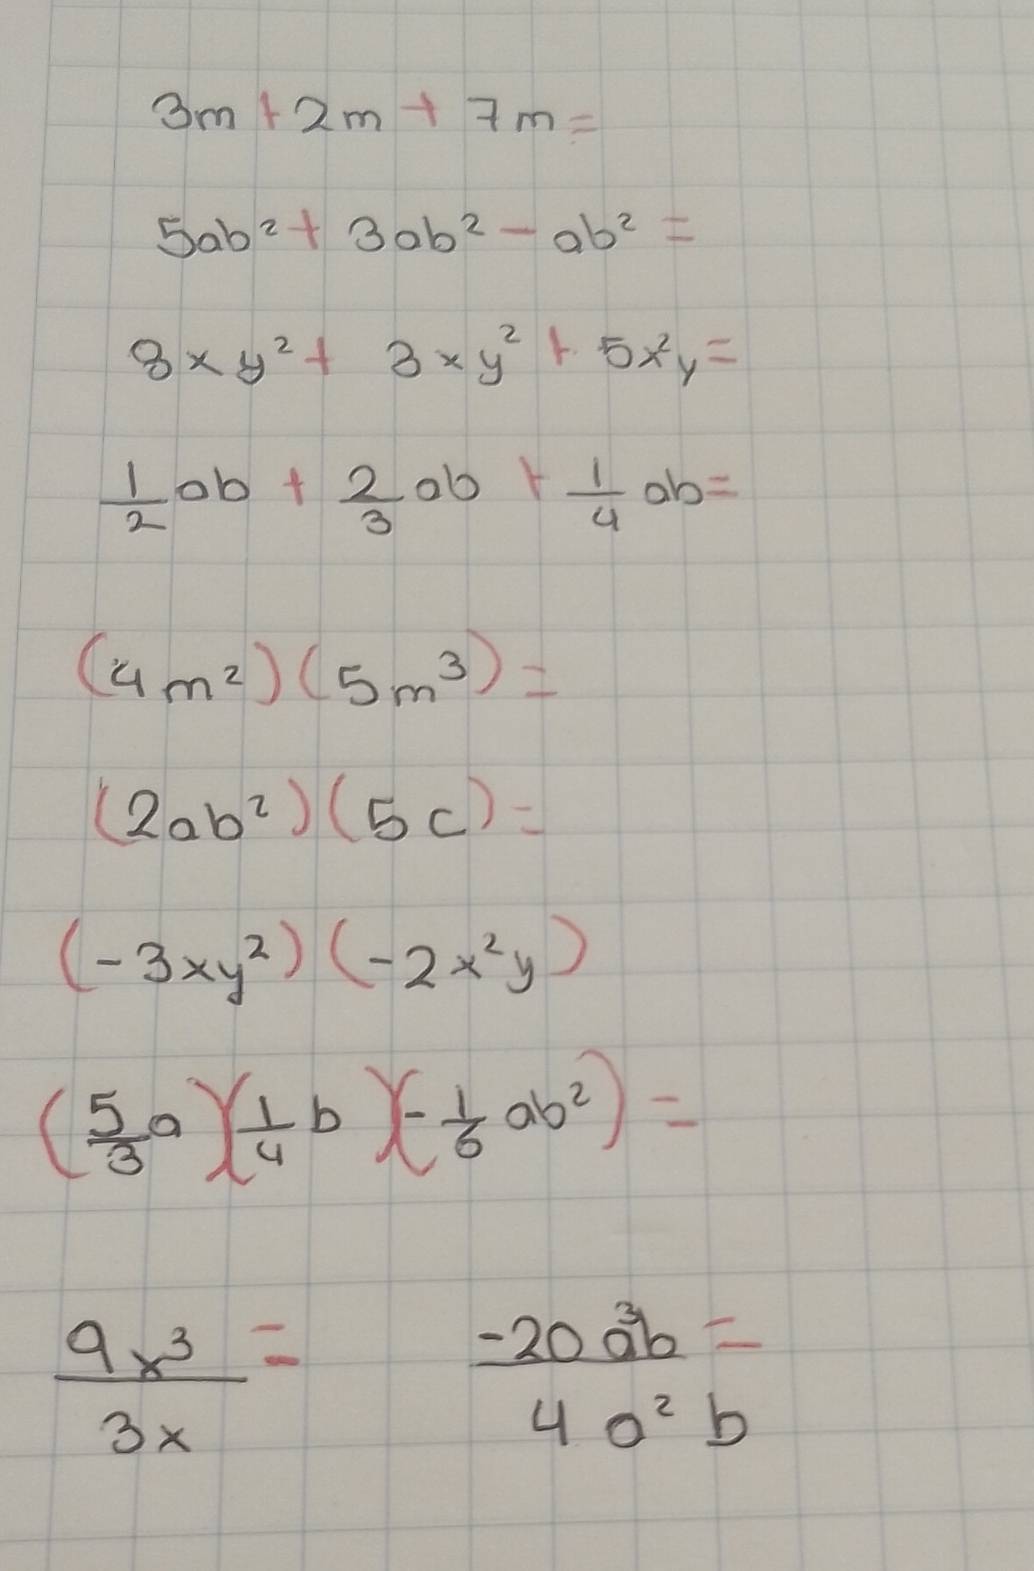 3m + 2m + 7m =
5ab² + 3ab² - ab² =
8xy² + 3xy² + 5x²y =
1/2 ab + 2/3 ab + 1/4 ab =
(4m²)(5m³) =
(2ab²)(5c) =
(-3xy²)(-2x²y)
(5/3 a)(1/4 b)(-1/6 ab²) =
9x³/3x = -20a³b/4a²b =